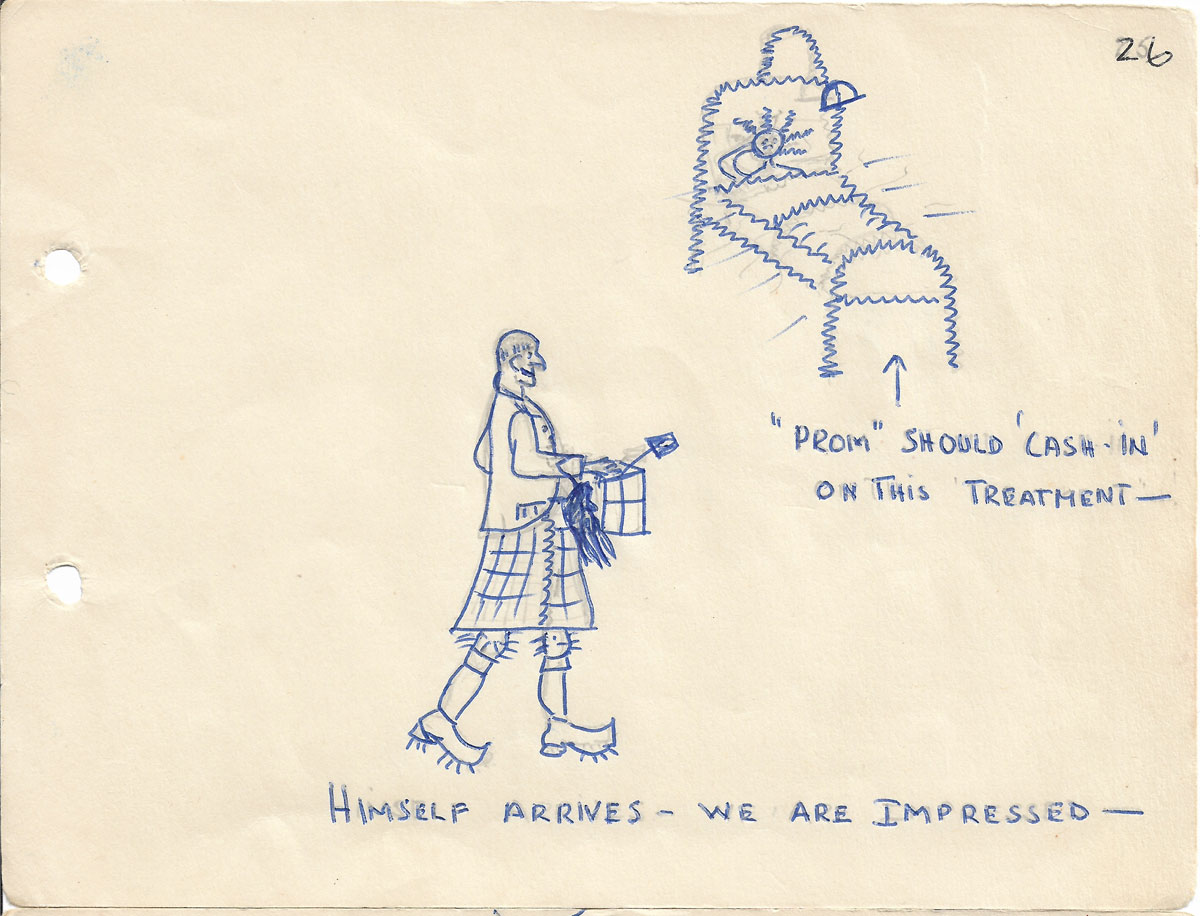 26
"PROM" SHOULD 'CASH-IN'
ON THIS TREATMENT—
HIMSELF ARRIVES – WE ARE IMPRESSED—